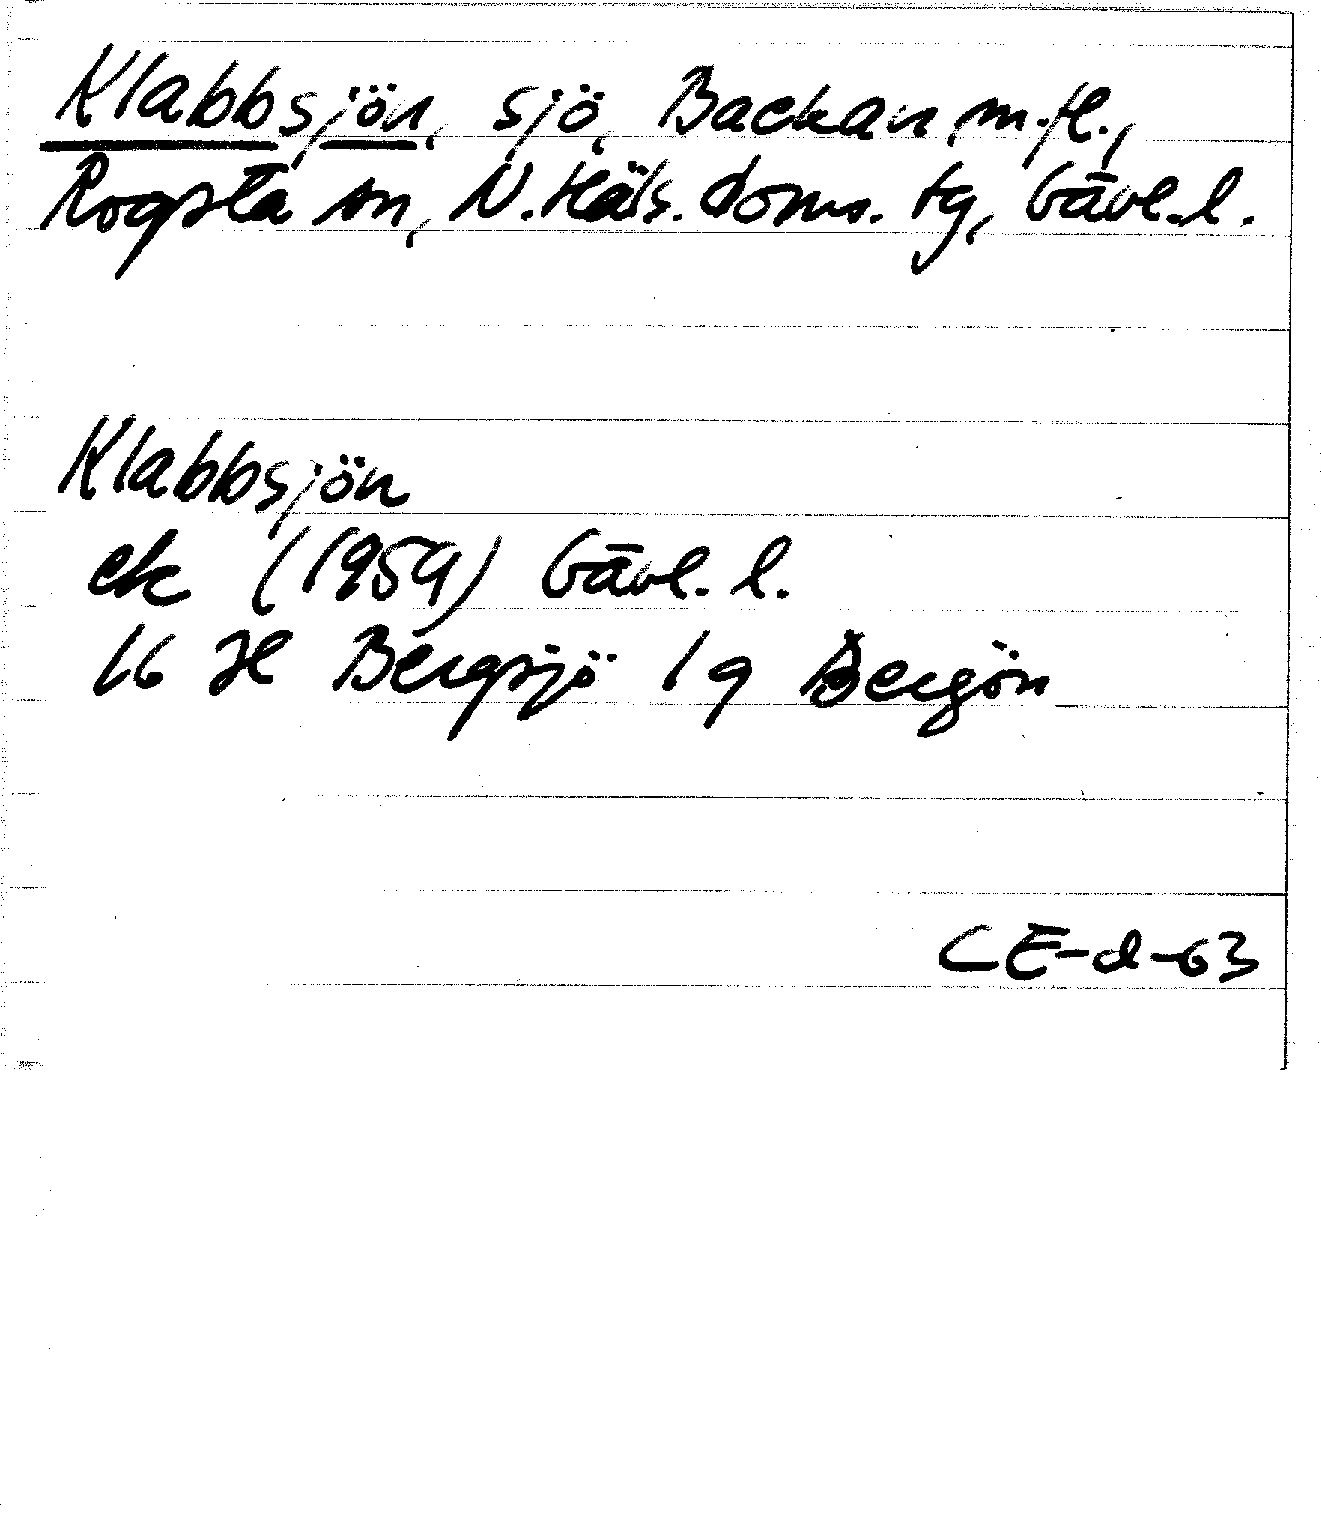 Klabbsjön, sjö, Backan m.fl.,
Rogsta sn, N. Häls. doms. tg, Gävl. l.
Klabbsjön
ek (1959) Gävl. l.
16 H Bergsjö 1 g Bergön
CE-d-63